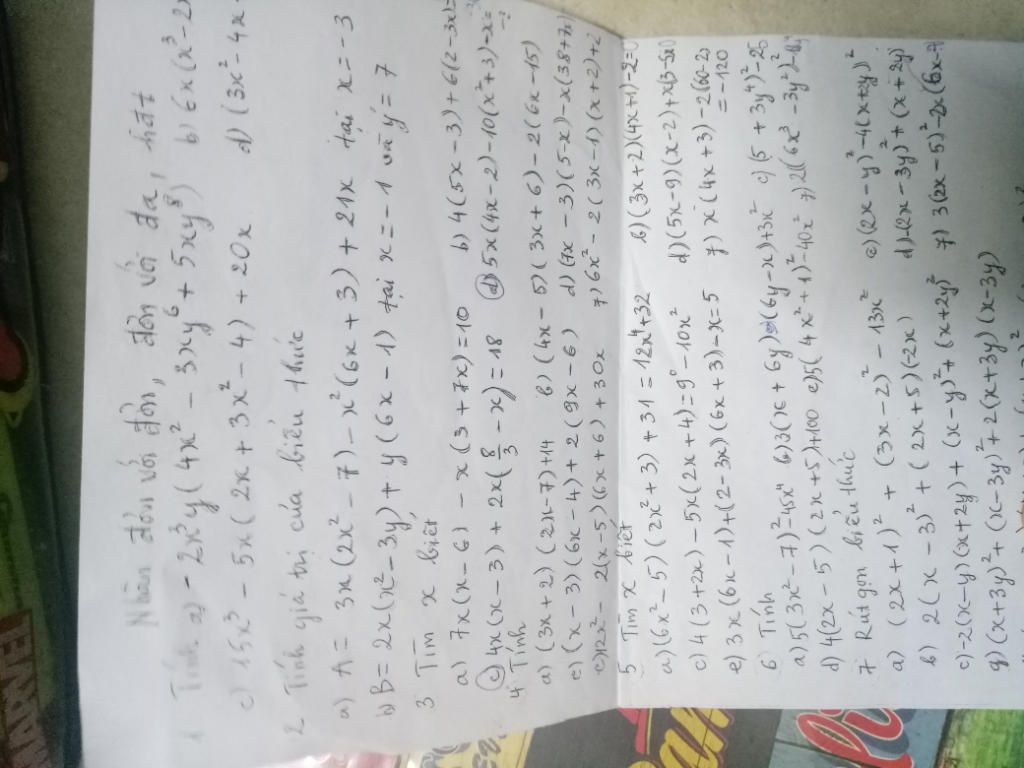 Nhân đơn với đơn, đơn với đa, hđt
1 Tính a) - 2x³y(4x² - 3xy⁶ + 5xy⁸) b) 6x(x³-2x
c) 15x³ - 5x(2x + 3x² - 4) + 20x d) (3x² - 4x
2 Tính giá trị của biểu thức
a) A = 3x(2x² - 7) - x²(6x + 3) + 21x tại x = -3
b) B = 2x(x² - 3y) + y(6x - 1) tại x = -1 và y = 7
3 Tìm x biết
a) 7x(x - 6) - x(3 + 7x) = 10 b) 4(5x - 3) + 6(2 - 3x)
c) 4x(x - 3) + 2x(8/3 - x) = 18 d) 5x(4x - 2) - 10(x² + 3) - 2x
4 Tính
a) (3x + 2)(2x - 7) + 14 b) (4x - 5)(3x + 6) - 2(6x - 15)
c) (x - 3)(6x - 4) + 2(9x - 6) d) (7x - 3)(5 - x) - x(38 + 7x)
e) 12x² - 2(x - 5)(6x + 6) + 30x 7) 6x² - 2(3x - 1)(x + 2) + 2
5 Tìm x biết
a) (6x² - 5)(2x² + 3) + 31 = 12x⁴ + 32 b) (3x + 2)(4x + 1) - 2
c) 4(3 + 2x) - 5x(2x + 4) = 9 - 10x² d) (5x - 9)(x - 2) + x(3 - 5x)
e) 3x(6x - 1) + (2 - 3x)(6x + 3) - x = 5 7) x(4x + 3) - 2(
= -120
6 Tính
a) 5(3x² - 7)² - 45x⁴ b) 3(x + 6y)(6y - x) + 3x² c) (5 + 3y⁴)² - 25
d) 4(2x - 5)(2x + 5) + 100 e) 5(4x² + 1)² - 40x² 7) 2(6x³ - 3y²)² - 18y
7 Rút gọn biểu thức
a) (2x + 1)² + (3x - 2)² - 13x² c) (2x - y)² - 4(x + y)²
b) 2(x - 3)² + (2x + 5)(-2x) d) (2x - 3y)² + (x + 3y)
c) -2(x - y)(x + 2y) + (x - y)² + (x + 2y)² 7) 3(2x - 5)² - 2x(6x - 7
g) (x + 3y)² + (x - 3y)² + 2(x + 3y)(x - 3y)
MARVEL